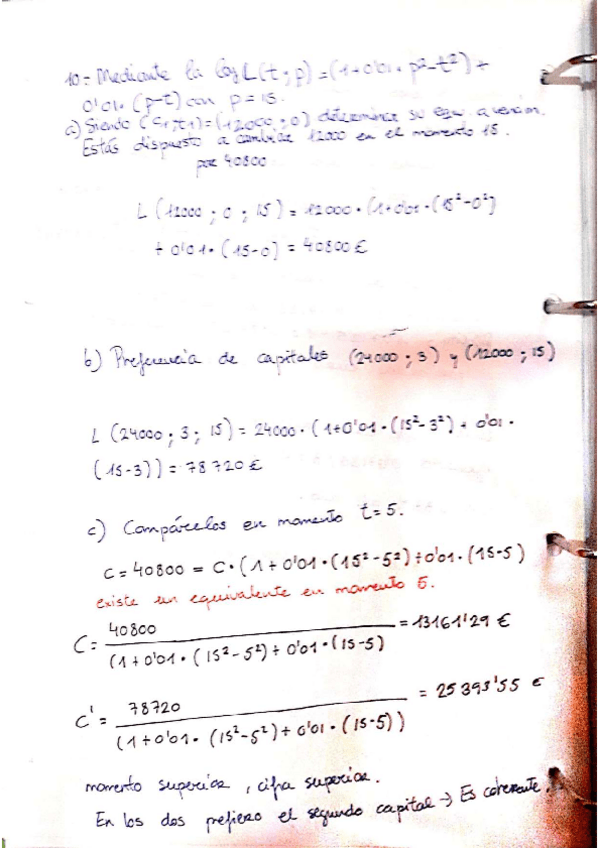 10- Mediante la ley L(t;p) = (1+0'01· p²-t²) +
0'01· (p-t) con p = 15.
a) Siendo (C1,t1) = (12000 ; 0) determinar su
Estás dispuesto a cambiar 12000 en el momento 15.
por 40800
L (12000 ; 0 ; 15) = 12000 · (1+0'01·(15²-0²)
+ 0'01· (15-0) = 40800 €
b) Preferencia de capitales (24000 ; 3) y (12000 ; 15)
L (24000 ; 3 ; 15) = 24000 · (1+0'01·(15²-3²) + 0'01 ·
(15-3)) = 78720 €
c) Compárelos en momento t=5.
C = 40800 = C· (1 + 0'01 · (15²-5²) + 0'01· (15-5)
existe un equivalente en momento 5.
C = 40800 / (1+0'01 · (15²-5²) + 0'01 · (15-5) = 13161'29 €
C' = 78720 / (1+0'01 · (15²-5²) + 0'01 · (15-5)) = 25393'55 €
momento superior , cifra superior.
En los dos prefiero el segundo capital → Es coherente.